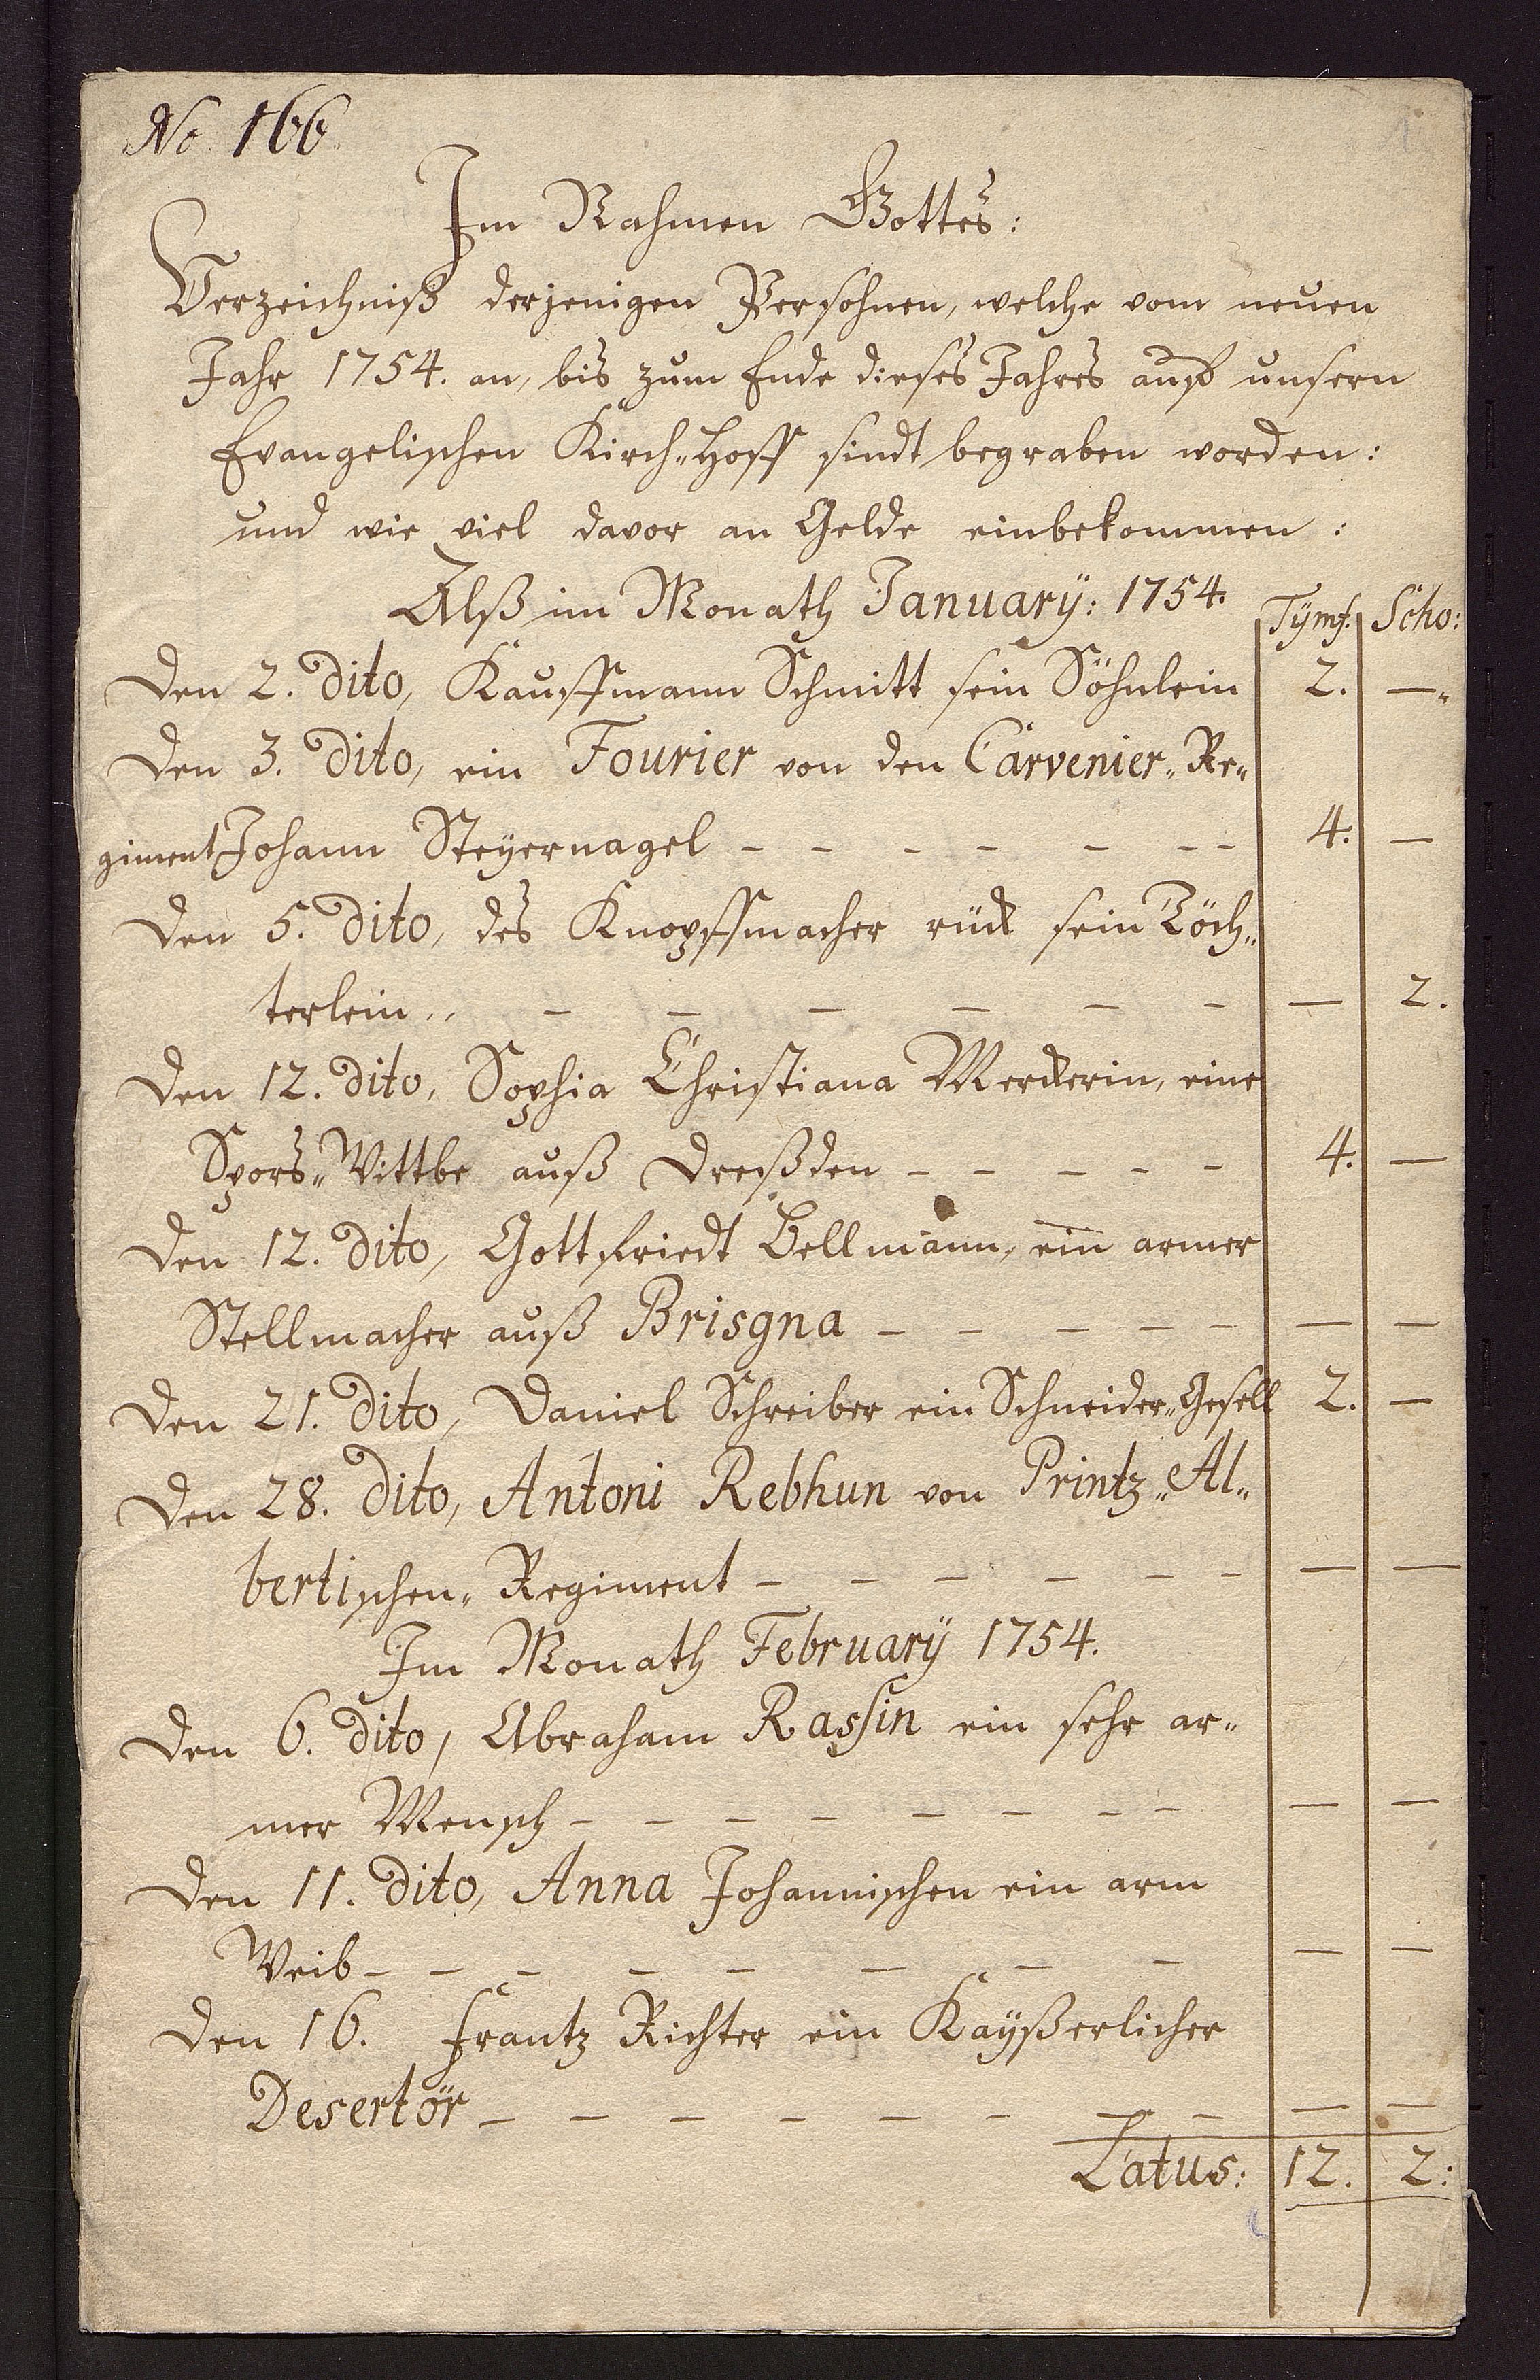 No 166
1
Im Nahmen Gottes:
Verzeichniß derjenigen Persohnen, welche vom neuen
Jahr 1754. an, bis zum Ende dieses Jahres auff unsern
Evangelischen Kirch„Hoff sindt begraben worden:
und wie viel davor an Gelde einbekommen:
Alß im Monath Januarÿ: 1754. Tÿmf. Scho:
Den 2. Dito, Kauffmann Schmitt sein Söhnlein 2. —„
Den 3. Dito, ein Fourier von den Carvenier„Re„
giment Johann Steÿernagel - - - - - - - 4. —
Den 5. Dito, des Knopffmacher rück sein Töch„
terlein„ - - - - - - — 2.
Den 12. Dito, Sophia Christiana Merckerin, eine
Spors„Wittbe auß Dreßden - - - - - 4. —
Den 12. Dito, Gottfriedt Bellmann, ein armer
Stellmacher auß Brisgna - - - - - — —
Den 21. Dito, Daniel Schreiber ein Schneider„Gesell 2. —
Den 28. Dito, Antoni Rebhun von Printz„Al„
bertischen„Regiment - - - - - - — —
Im Monath Februarÿ 1754.
Den 6. Dito, Abraham Rassin ein sehr ar„
mer Mensch - - - - - - - - — —
Den 11. Dito, Anna Johannischen ein arm
Weib - - - - - - - - — —
Den 16. Frantz Richter ein Kaÿßerlicher
Desertör - - - - - - - - — —
Latus: 12. 2: